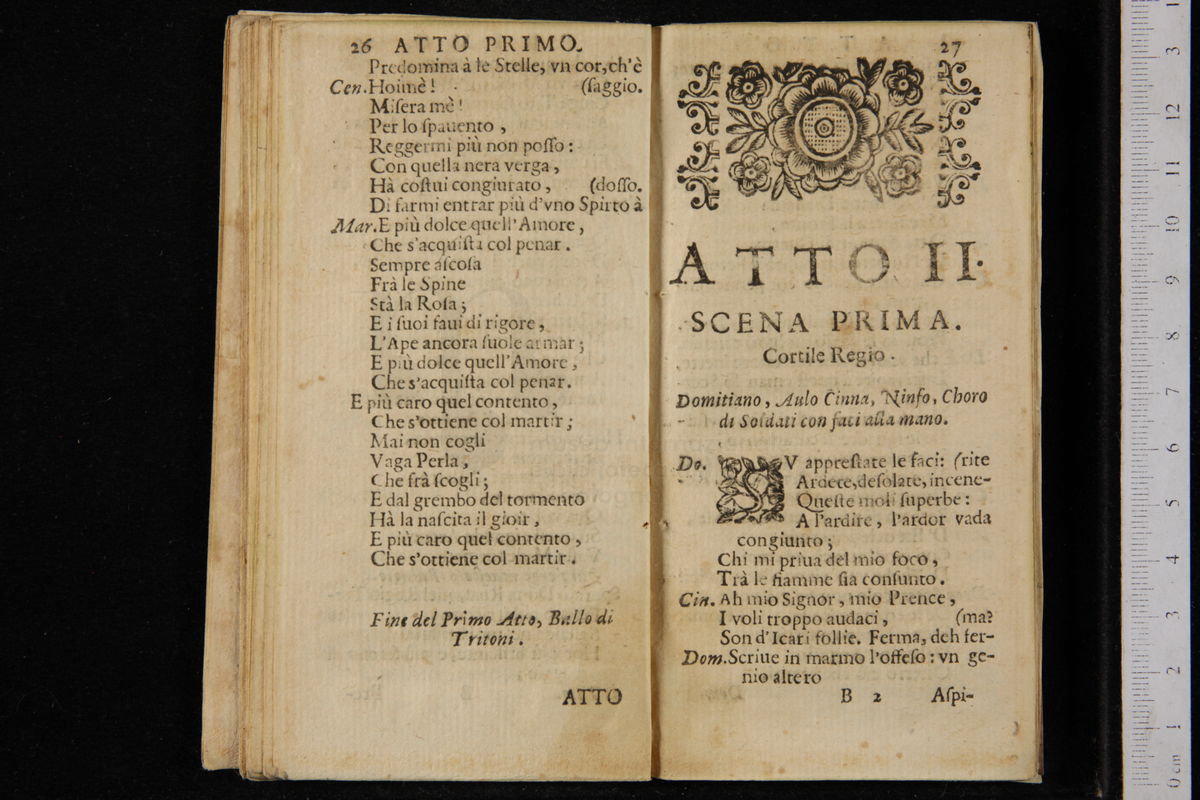 26 ATTO PRIMO.
Predomina à le Stelle, vn cor, ch'è
Cen. Hoimè! (ſaggio.
Miſera mè!
Per lo ſpauento,
Reggermi più non poſſo:
Con quella nera verga,
Hà coſtui congiurato, (doſſo.
Di farmi entrar più d'vno Spirto à
Mar. E più dolce quell'Amore,
Che s'acquiſta col penar.
Sempre aſcoſa
Frà le Spine
Stà la Roſa;
E i ſuoi faui di rigore,
L'Ape ancora ſuole armar;
E più dolce quell'Amore,
Che s'acquiſta col penar.
E più caro quel contento,
Che s'ottiene col martir;
Mai non cogli
Vaga Perla,
Che frà ſcogli;
E dal grembo del tormento
Hà la naſcita il gioir,
E più caro quel contento,
Che s'ottiene col martir.
Fine del Primo Atto, Ballo di
Tritoni.
ATTO
27
ATTO II.
SCENA PRIMA.
Cortile Regio.
Domitiano, Aulo Cinna, Ninfo, Choro
di Soldati con faci alla mano.
Do. SV appreſtate le faci: (rite
Ardete, deſolate, incene-
Queſte moli ſuperbe:
A l'ardire, l'ardor vada
congiunto;
Chi mi priua del mio foco,
Trà le fiamme ſia conſunto.
Cin. Ah mio Signor, mio Prence,
I voli troppo audaci, (ma?
Son d'Icari follie. Ferma, deh fer-
Dom. Scriue in marmo l'offeſo: vn ge-
nio altero
B 2 Aſpi-
3
1
12
11
10
9
8
7
6
5
4
3
2
1
0 cm